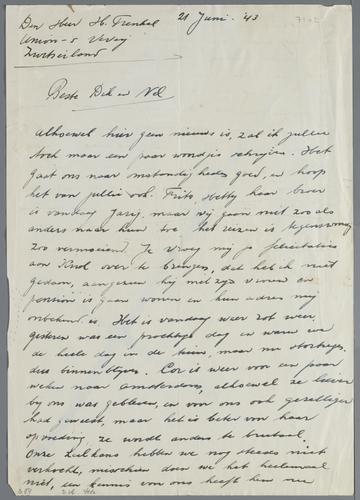 Den Heer H. Frenkel
21 Juni '43
Union - s Vevey
Zwitserland
Beste Dik en Nel
Alhoewel hier geen nieuws is, zal ik jullie
toch maar een paar woordjes schrijven. Het
gaat ons naar omstandigheden goed, en hoop
het van jullie ook. Frits, Hetty haar broer
is vandaag jarig, maar wij gaan niet zoo als
anders naar hun toe, het reizen is tegenwoordig
zoo vermoeiend. Je vroeg mij je felicitaties
aan Knol over te brengen, dat heb ik niet
gedaan, aangezien hij met zijn vrouw en
pension is gaan wonen en hun adres mij
onbekend is. Het is vandaag weer zot weer,
gisteren was een prachtige dag en waren we
de heele dag in de tuin, maar nu
dus binnen blijven. Cor is weer voor een paar
weken naar Amsterdam, alhoewel ze liever
bij ons was gebleven, en voor ons ook gezelliger
had geweest, maar het is beter voor haar
opvoeding, ze wordt anders te brutaal.
Onze Zeilkano hebben we nog steeds niet
verkocht, misschien doen we het heelemaal
niet, een kennis van ons heeft hem nu